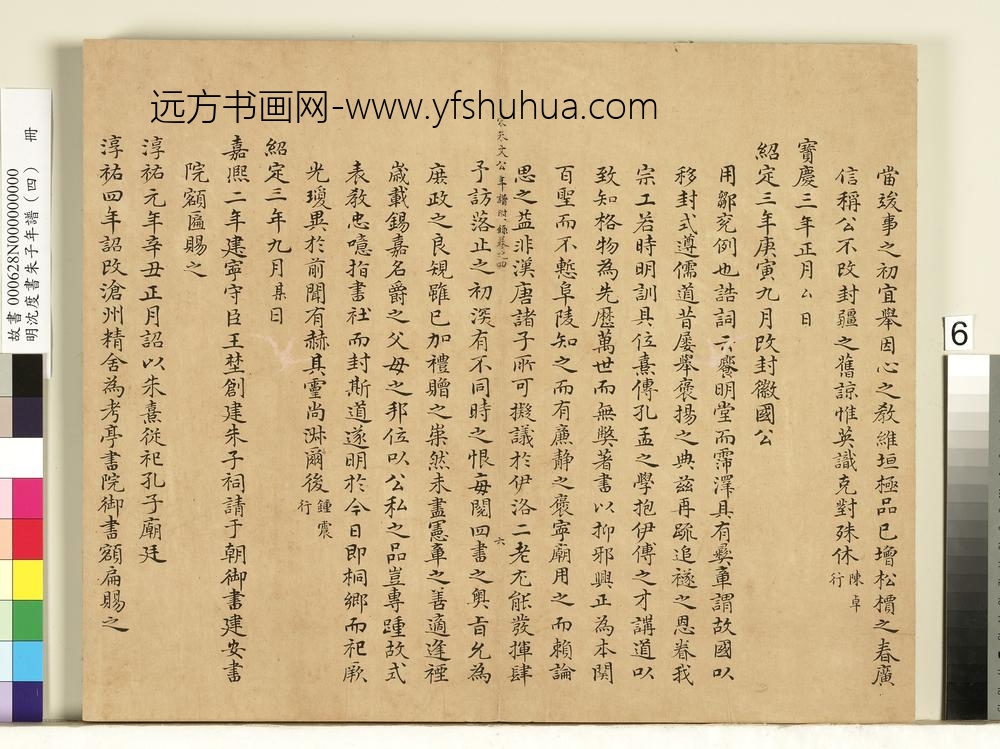 远方书画网-www.yfshuhua.com
當啓事之初宜舉因心之敎維垣極品已增松檟之春廣
信稱公不改封疆之舊諒惟英識克對殊休 陳卓行
寶慶三年正月厶日
紹定三年庚寅九月改封徽國公
用鄒兖例也誥詞云饗明堂而霈澤具有彝章謂故國以
移封式遵儒道昔屡舉褒揚之典兹再疏追襚之恩眷我
宗工若時明訓具位熹傳孔孟之學抱伊傅之才講道以
致知格物為先歷萬世而無獘著書以抑邪興正為本関
百聖而不慙阜陵知之而有廉静之褒寧廟用之而賴論
思之益非漢唐諸子所可擬議於伊洛二老尤能發揮肆
年譜附錄卷之四
六
予訪落止之初深有不同時之恨每閱四書之奥旨允為
庶政之良規雖已加禮贈之崇然未盡憲章之善適逢禋
歲載錫嘉名爵之父母之邦位以公私之品豈專踵故式
表敎忠噫指書社而封斯道遂明於今日即桐鄉而祀厥
光瓊異於前聞有赫其靈尚淋爾後 鍾震行
紹定三年九月某日
嘉熙二年建寧守臣王埜創建朱子祠請于朝御書建安書
院額匾賜之
淳祐元年辛丑正月詔以朱熹從祀孔子廟廷
淳祐四年詔改滄州精舍為考亭書院御書額扁賜之
故書000628N000000000
明沈度書朱子年譜（四） 冊
6